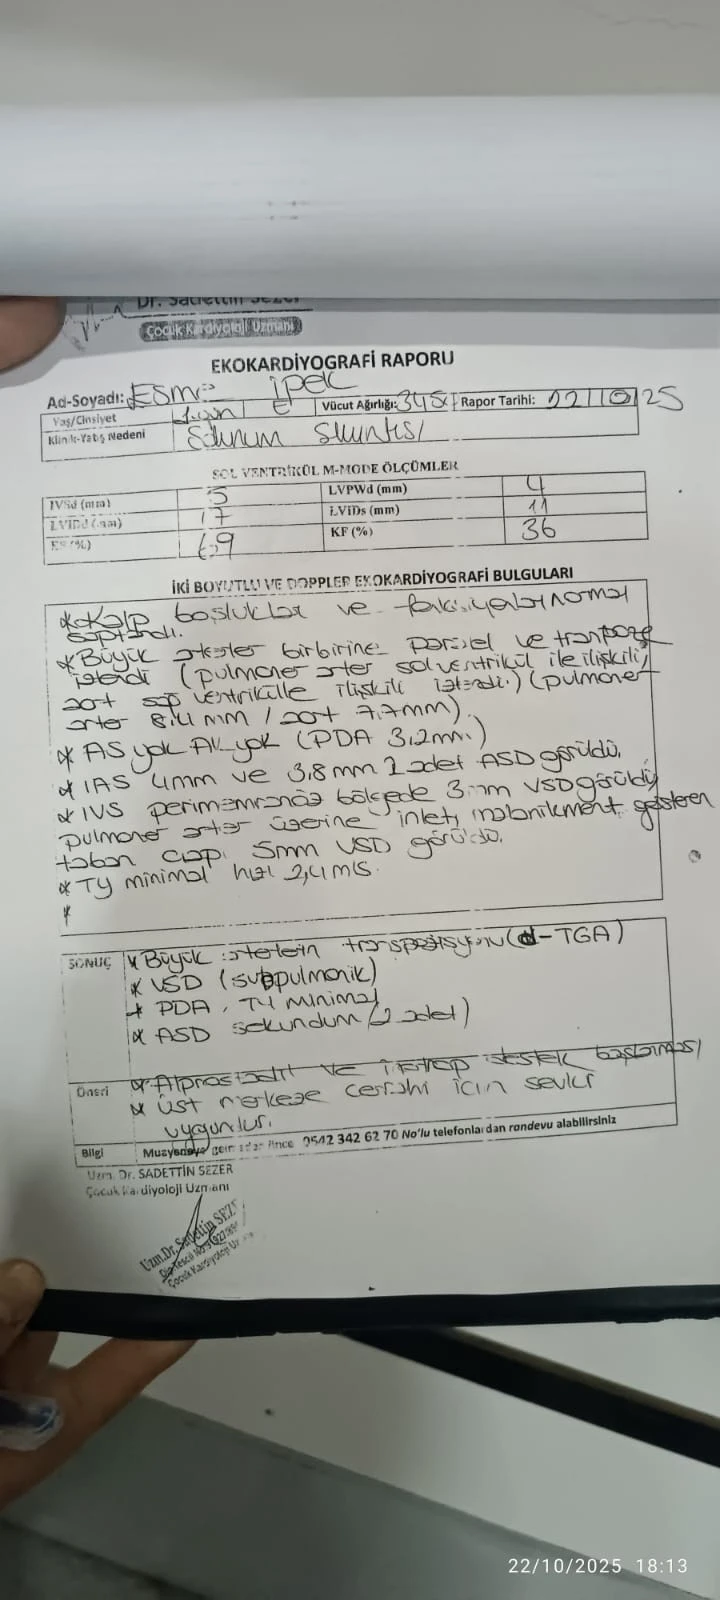 Dr. Sadettin SEZER
Çocuk Kardiyoloji Uzmanı
EKOKARDİYOGRAFİ RAPORU
Ad-Soyadı: Esma İpek
Yaş/Cinsiyet 1 gün E Vücut Ağırlığı: Rapor Tarihi: 22/10/25
Klinik-Yatış Nedeni Solunum Sıkıntısı
SOL VENTRİKÜL M-MODE ÖLÇÜMLER
IVSd (mm) 3 LVPWd (mm) 4
LVIDd (mm) 17 LVIDs (mm) 11
EF (%) 69 KF (%) 36
İKİ BOYUTLU VE DOPPLER EKOKARDİYOGRAFİ BULGULARI
* Kalp boşlukları ve fonksiyonları normal
saptandı.
* Büyük arterler birbirine paralel ve transpoze
izlendi (pulmoner arter sol ventrikül ile ilişkili,
aort sağ ventrikülle ilişkili izlendi.) (pulmoner
arter 8.4 mm / aort 7.7mm)
* AS yok AK yok (PDA 3,2mm.)
* IAS 4mm ve 3,8mm 2 adet ASD görüldü.
* IVS perimembranöz bölgede 3 mm VSD görüldü
pulmoner arter üzerine inlet, gösteren
taban çapı 5mm VSD görüldü.
* TY minimal hızı 2,4 m/s.
*
SONUÇ * Büyük arterlerin transpozisyonu (d-TGA)
* VSD (subpulmonik)
* PDA, TY minimal
* ASD sekundum (2 adet)
Öneri * Alprostadil ve inotrop destek başlanması
* Üst merkeze cerrahi için sevki
uygundur.
Bilgi Muayeneye gelmeden önce 0542 342 62 70 No'lu telefonlardan randevu alabilirsiniz
Uzm. Dr. SADETTİN SEZER
Çocuk Kardiyoloji Uzmanı
Uzm.Dr. Sadettin SEZER
Çocuk Kardiyoloji Uzmanı
22/10/2025 18:13